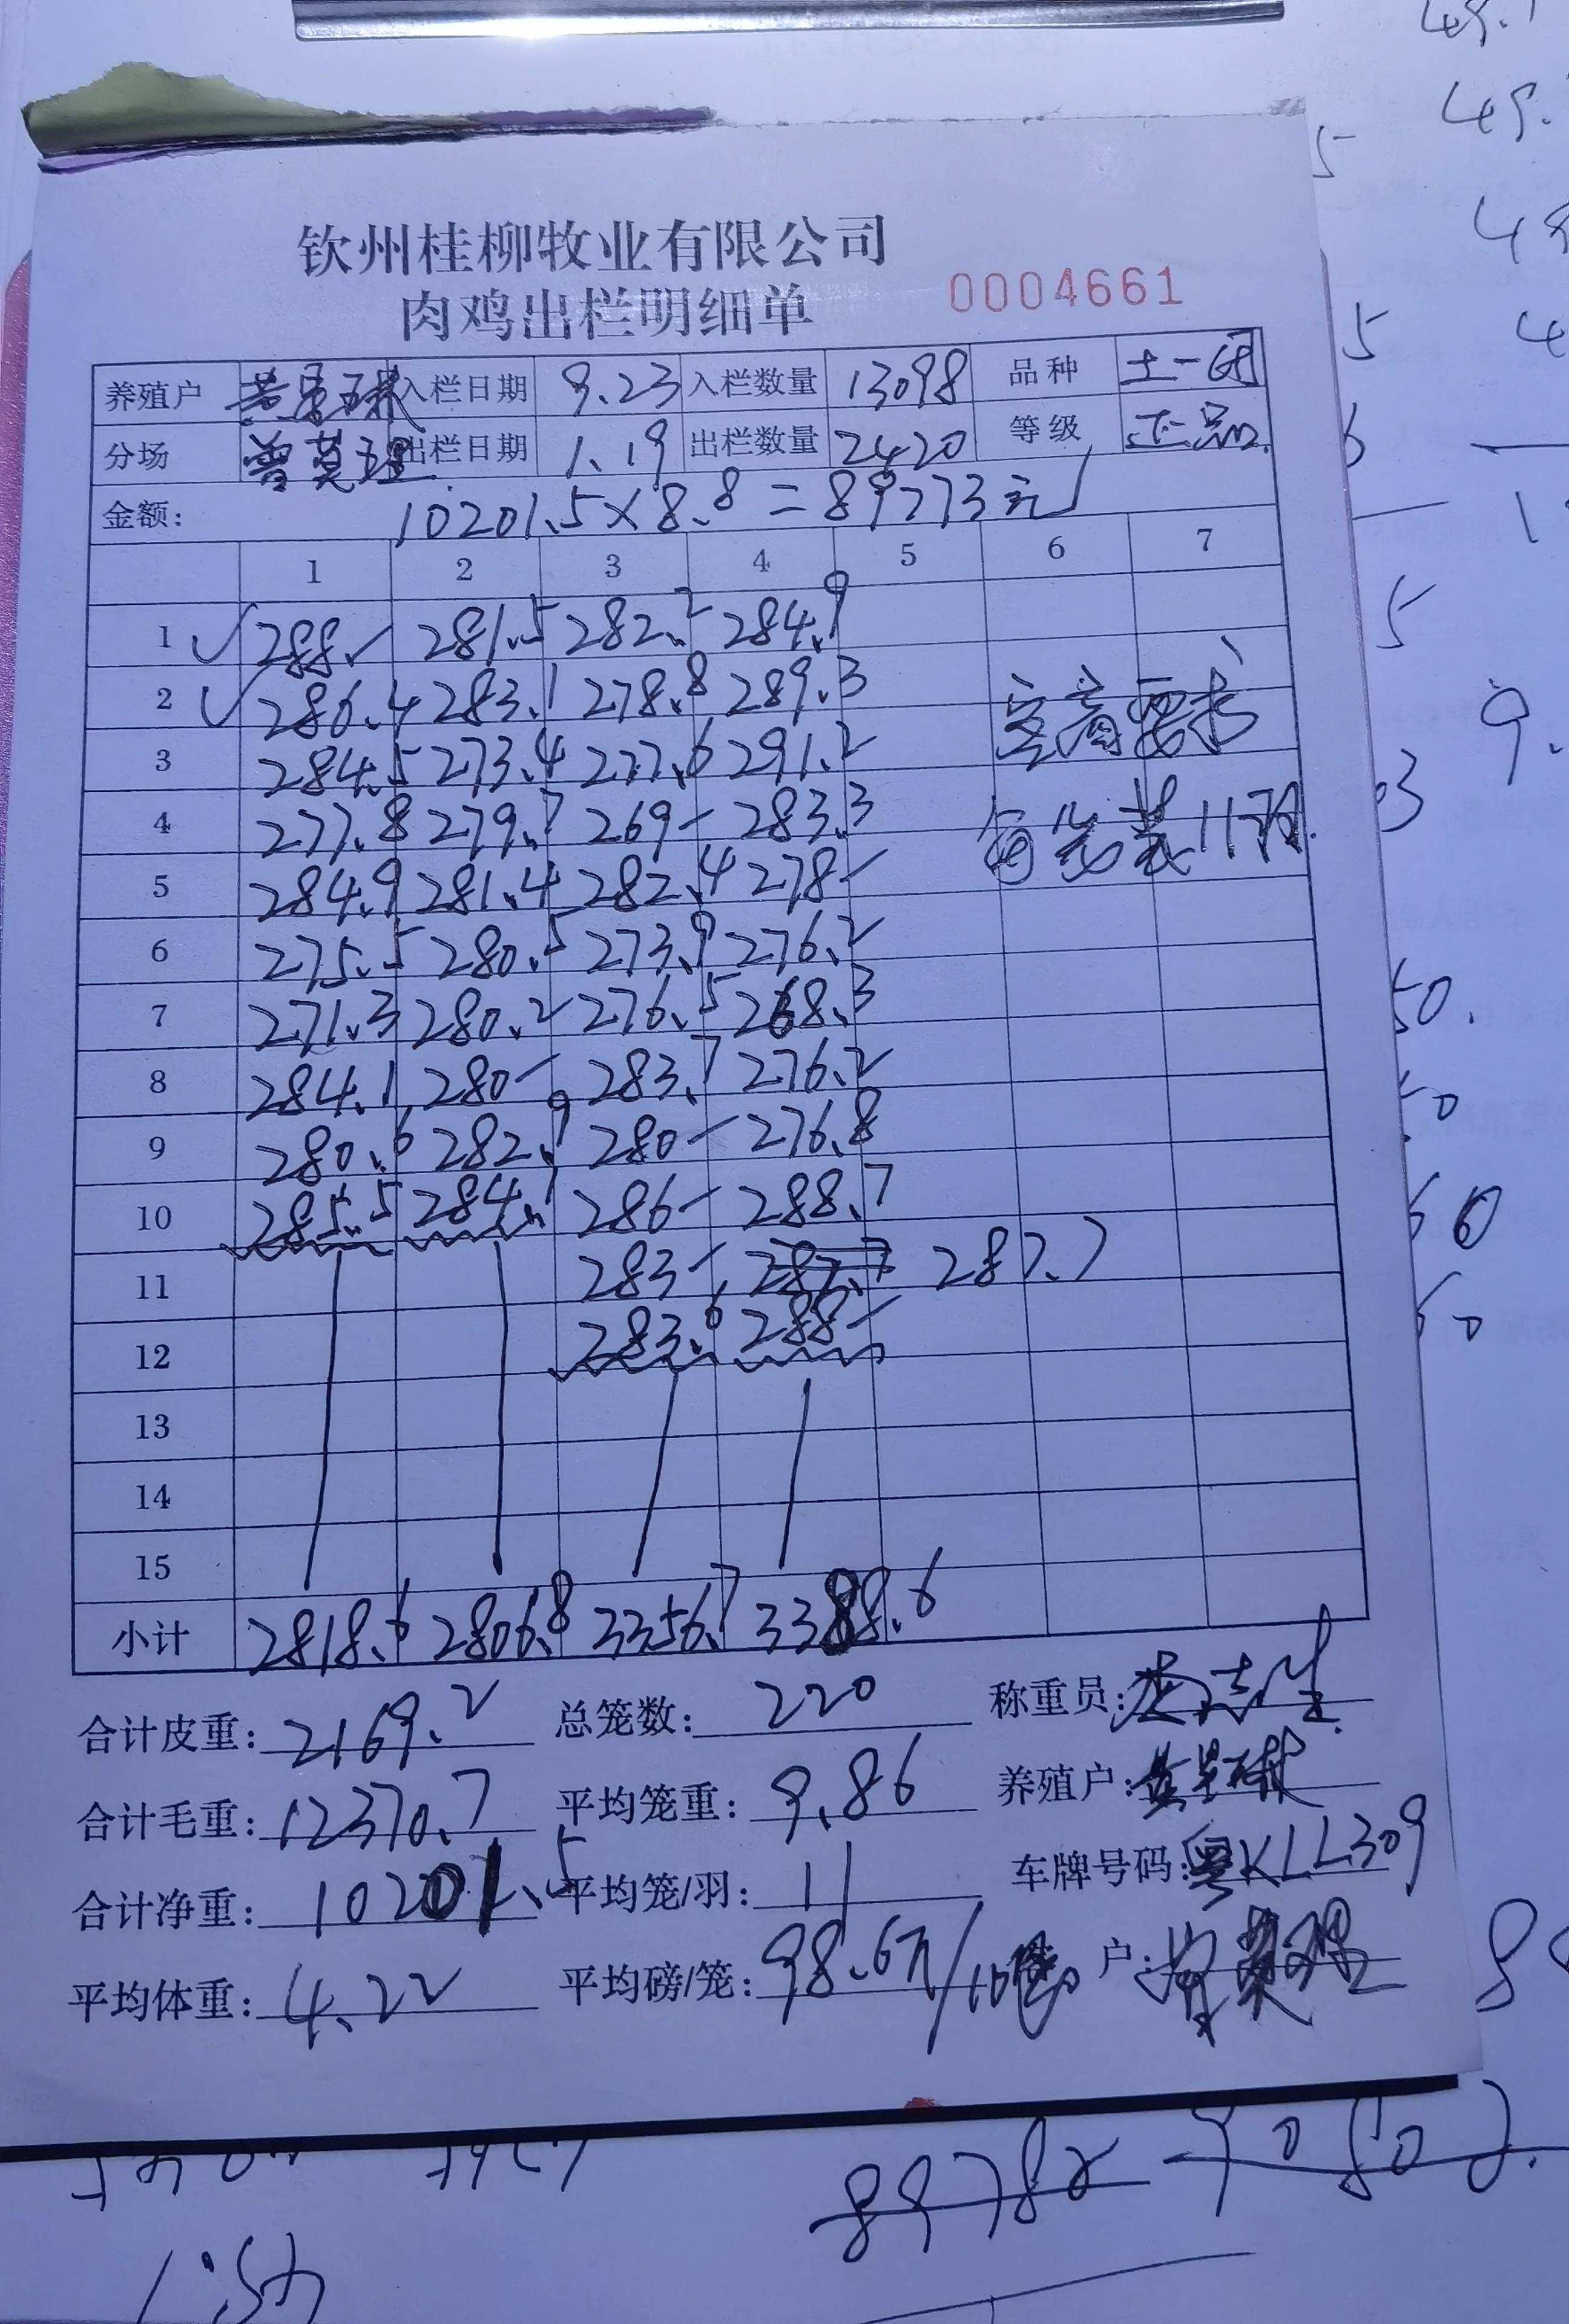 钦州桂柳牧业有限公司
肉鸡出栏明细单 0004661
养殖户 入栏日期 9.23 入栏数量 13098 品种 土一
分场 曾莫理 出栏日期 1.19 出栏数量 2420 等级 正品
金额: 10201.5×8.8=89773元
1 2 3 4 5 6 7
1 288 281.5 282.2 284.9
2 286.4 283.1 278.8 289.3
3 284.5 273.4 277.6 291.2
4 277.8 279.7 269 283.3
5 284.9 281.4 282.4 278
6 275.5 280.5 273.9 276.2
7 271.3 280.2 276.5 268.3
8 284.1 280 283.7 276.2
9 280.6 282.9 280 276.8
10 285.5 284.1 286 288.7
11 283 287.7 287.7
12 283.6 288
13
14
15
小计 2818.6 2806.8 3356.7 3388.6
客商要求
每笼装11羽
合计皮重: 2169.2 总笼数: 220 称重员:
合计毛重: 12370.7 平均笼重: 9.86 养殖户:
合计净重: 10201.5 平均笼/羽: 11 车牌号码: 粤KLL309
平均体重: 4.22 平均磅/笼: 98.6 户: 曾莫理